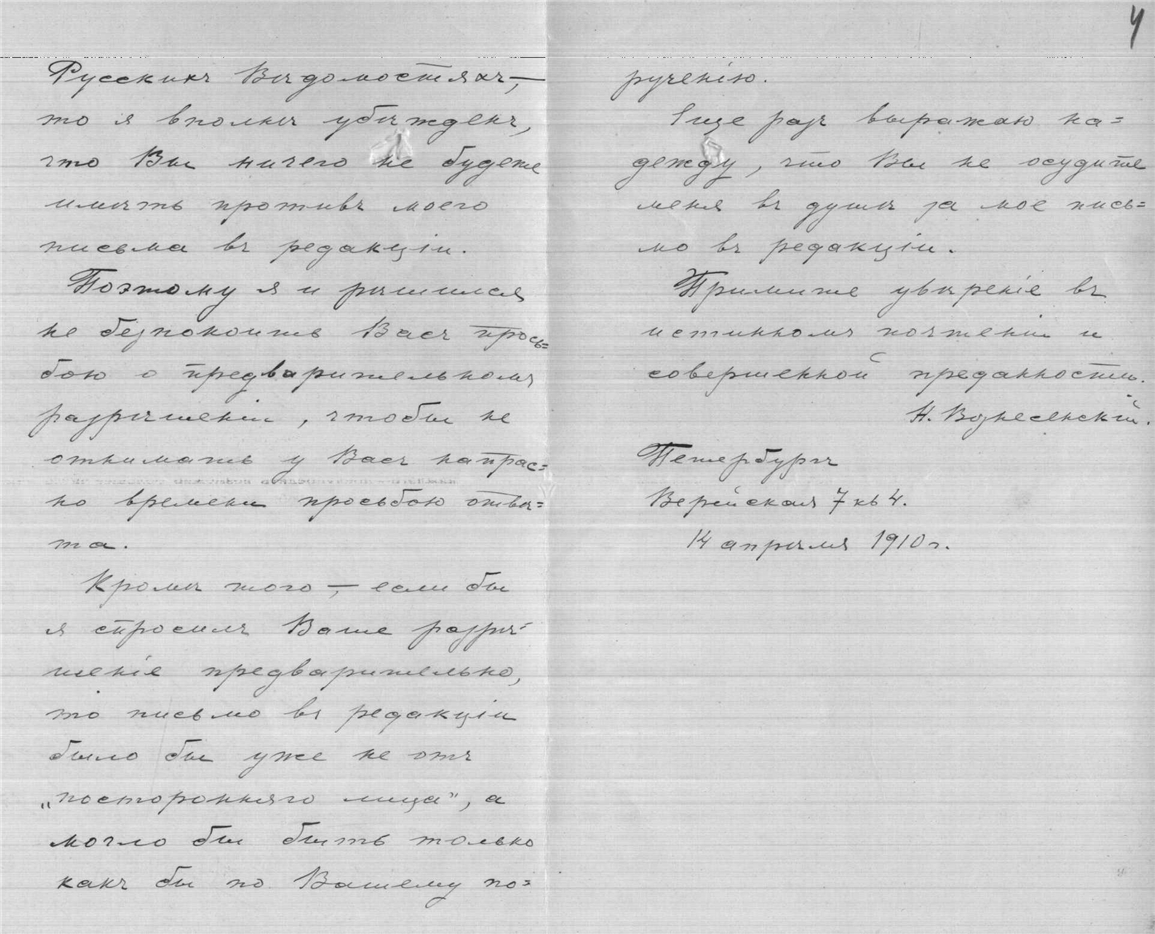 4
Русскихъ Вѣдомостяхъ,—
то я вполнѣ убѣжденъ,
что Вы ничего не будете
имѣть противъ моего
письма въ редакціи.
Поэтому я и рѣшился
не безпокоить Васъ прось=
бою о предварительномъ
разрѣшеніи, чтобы не
отнимать у Васъ напрас=
но времени просьбою отвѣ=
та.
Кромѣ того,— если бы
я спросилъ Ваше разрѣ-
шеніе предварительно,
то письмо въ редакціи
было бы уже не отъ
„посторонняго лица", а
могло бы быть только
какъ бы по Вашему по=
рученію.
Еще разъ выражаю на=
дежду, что Вы не осудите
меня въ душѣ за мое пись=
мо въ редакціи.
Примите увѣреніе въ
истинномъ почтеніи и
совершенной преданности.
Н. Вознесенскій.
Петербургъ
Верейская 7 кв 4.
14 апрѣля 1910 г.